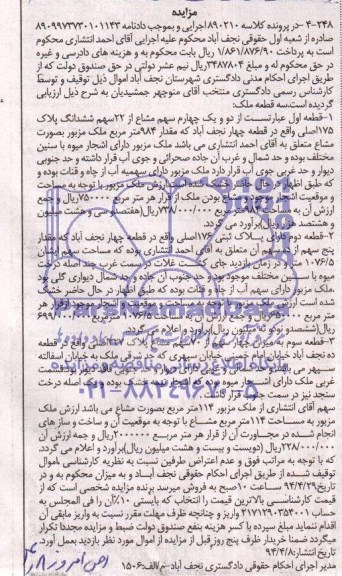 مزایده
۴-۲۴۸-در پرونده کلاسه ۸۹۰۲۱۰اجرایی و بموجب دادنامه ۸۹۰۹۹۷۳۷۳۰۱۰۱۱۴۳
صادره از شعبه اول حقوقی نجف آباد محکوم علیه اجرایی آقای احمد انتشاری محکوم
است به پرداخت ۱/۸۶۱/۸۷۶/۹۰ ریال بابت محکوم به و هزینه های دادرسی و غیره
در حق محکوم له و مبلغ ۳۴۸۷۸۰۴ریال نیم عشر دولتی در حق صندوق دولت که از
طریق اجرای احکام مدنی دادگستری شهرستان نجف آباد اموال ذیل توقیف و توسط
کارشناس رسمی دادگستری منتخب آقای منوچهر جمشیدیان به شرح ذیل ارزیابی
گردیده است.سه قطعه ملک:
۱-قطعه اول عبارتست از دو و یک چهارم سهم مشاع از ۲۲سهم ششدانگ پلاک
۱۷۵اصلی واقع در قطعه چهار نجف آباد که مقدار ۹۸۴متر مربع ملک مزبور بصورت
مشاع متعلق به آقای احمد انتشاری می باشد ملک مزبور دارای اشجار میوه با سنین
مختلف بوده و حد شمال و غرب آن جاده صحرائی و جوی آب قرار داشته و حد جنوبی
دیوار و حد غربی جوی آب قرار دارد ملک مزبور دارای سهمیه آب از چاه و قنات بوده و
که طبق اظهار در حال حاضر خشک شده است ارزش ملک مزبور با توجه به مساحت
و موقعیت اشجار موجود مشاع بودن ملک از قرار هر متر مربع ۷۵۰۰۰۰ریال و جمع
ارزش آن به مساحت ۹۸۴متر مربع ۷۳۸/۰۰۰/۰۰۰ریال(هفتصدو سی و هشت میلیون
ریال)برآورد می گردد.
۲-قطعه دوم دارای پلاک ثبتی ۱۷۶اصلی واقع در قطعه چهار نجف آباد که مقدار
پنج سهم از سهم آن متعلق به آقای احمد انتشاری بوده که مساحت سهم ایشان
۱۰۷۶/۵ متر و در زمان بازدید جای کشت غلات در قسمت غرب چند اصله درخت
میوه با سنین مختلف موجود بود حد جنوب آن جاده و حد شمال دیواری گلی بود
ملک مزبور دارای سهم آب از چاه و قنات بوده که طبق اظهار در حال حاضر خشک
شده است ارزش ملک مزبور با توجه به مساحت و موقعیت و اشجار موجود از قرار هر
متر مربع ریال و جمع ارزش آن به مساحت ۱۰۷۶/۵ متر مربع
ریال(ششصدو نودو نه میلیون ریال)برآورد و اعلام می گردد.
۳-قطعه سوم به میزان چهار سهم از سهم مشاع پلاک ۳۲۷اصلی واقع در قطعه
ده نجف آباد خیابان امام خمینی خیابان سپهری که حد شرقی ملک به خیابان اسفالته
سپهر می باشد
غربی ملک دارای اشجار میوه بوده که اشجار سیب خشک بوده و یک اصله درخت
سنجد نیز در سمت جوی قرار داشت.
سهم آقای انتشاری از ملک مزبور ۱۱۴متر مربع بصورت مشاع می باشد ارزش ملک
مزبور به مساحت ۱۱۴متر مربع مشاع با توجه به موقعیت آن و ساخت و ساز های
انجام شده در مجاورت آن از قرار هر متر مربع ۲۰۰۰۰۰۰ریال و جمه ارزش آن
۲۲۸/۰۰۰/۰۰۰ریال (دویست و بیست و هشت میلیون ریال)برآورد و اعلام می گردد.
که با توجه به مراتب فوق و عدم اعتراض طرفین نسبت به نظریه کارشناسی ماموال
توقیف شده از طریق اجرای احکام حقوقی نجف آباد و به میزان محکوم به و در
تاریخ ۹۴/۴/۲۹ ساعت ۱۰صبح به فروش میرسد برنده مزایده شخصی است که از
قیمت کارشناسی بالاترین قیمت را انتخاب که بایستی ۱۰٪آن را فی المجلس به
حساب ۲۱۷۱۲۹۰۳۵۴۰۰۱ واریز و چنانچه ظرف مهلت مقرر نسبت به واریز مابقی آن
اقدام ننماید مبلغ سپرده با کسر هزینه بنفع صندوق دولت ضبط و مزایده مجددا تکرار
میگردد ضمنا خریدار ظرف پنج روز قبل از مزایده از اموال مورد نظر بازدید بعمل آورد.
تاریخ انتشار:۹۴/۴/۸
مدیر اجرای احکام حقوقی دادگستری نجف آباد-م/الف:۱۵۰۶
۰۲۱-۸۸۳۴۹۶۷۰-۵